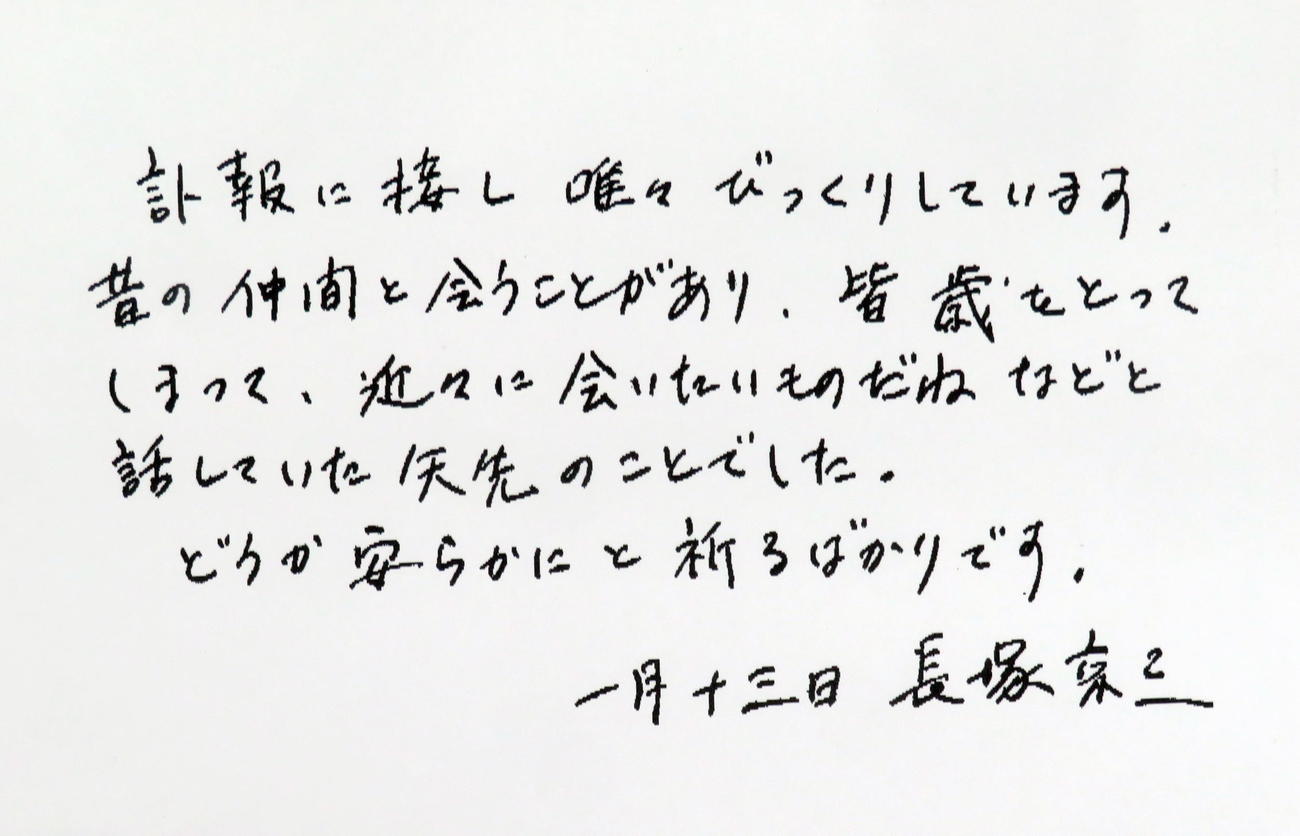 訃報に接し 唯々 びっくりしています.
昔の 仲間と 会うことがあり、皆 歳をとって
しまって、近々に 会いたいものだね などと
話していた 矢先 のことでした.
どうか 安らかにと 祈るばかりです.
一月十三日 長塚京三